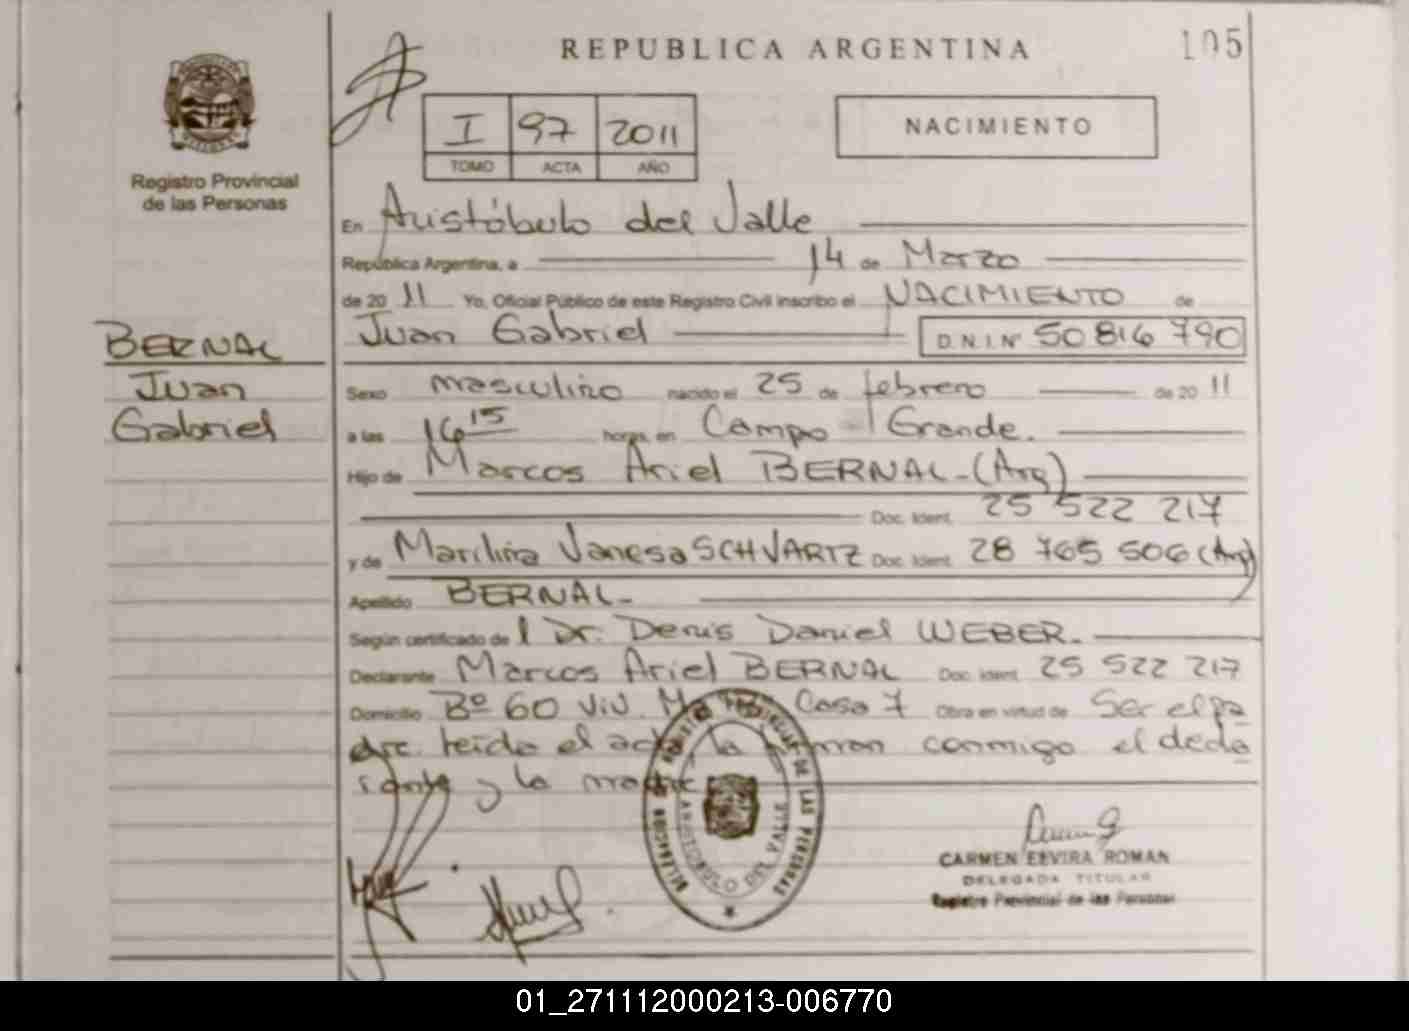 REPUBLICA ARGENTINA
105
Registro Provincial
de las Personas
I 97 2011
TOMO ACTA AÑO
NACIMIENTO
En Aristóbulo del Valle
República Argentina, a 14 de Marzo
de 2011 Yo, Oficial Público de este Registro Civil inscribo el NACIMIENTO de
Juan Gabriel D.N.I. Nº 50 816 790
BERNAL
Juan
Gabriel
Sexo masculino nacido el 25 de febrero de 2011
a las 16 15 horas, en Campo Grande.
Hijo de Marcos Ariel BERNAL-(Arg)
Doc. Ident. 25 522 217
y de Vanesa SCHVARTZ Doc. Ident. 28 765 506 (Arg)
Apellido BERNAL-
Según certificado de l Dr. Denis Daniel WEBER.-
Declarante Marcos Ariel BERNAL Doc. Ident. 25 522 217
Domicilio Bº 60 Viv. Casa 7 Obra en virtud de Ser el pa
dre. leida el acta la firman conmigo el decla
rante y la madre
DELEGACION REGISTRO PROVINCIAL DE LAS PERSONAS
ARISTOBULO DEL VALLE
CARMEN ELVIRA ROMAN
DELEGADA TITULAR
Registro Provincial de las Personas
01_271112000213-006770